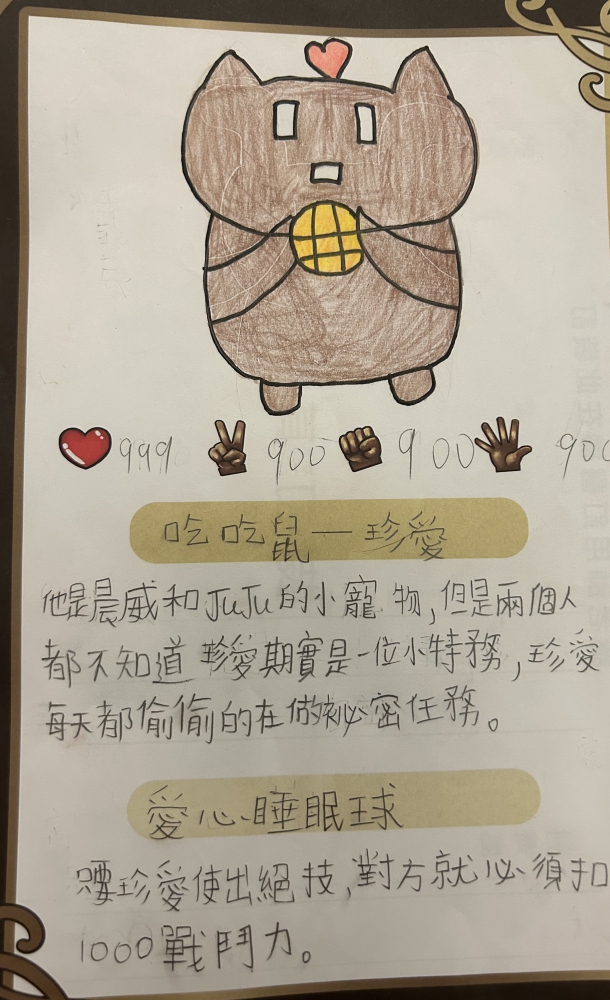 999 900 900 900
吃吃鼠一珍愛
他是晨威和JuJu的小寵物,但是兩個人
都不知道珍愛期實是一位小特務,珍愛
每天都偷偷的在做祕密任務。
愛心睡眠球
只要珍愛使出絕技,對方就必須扣
1000戰鬥力。